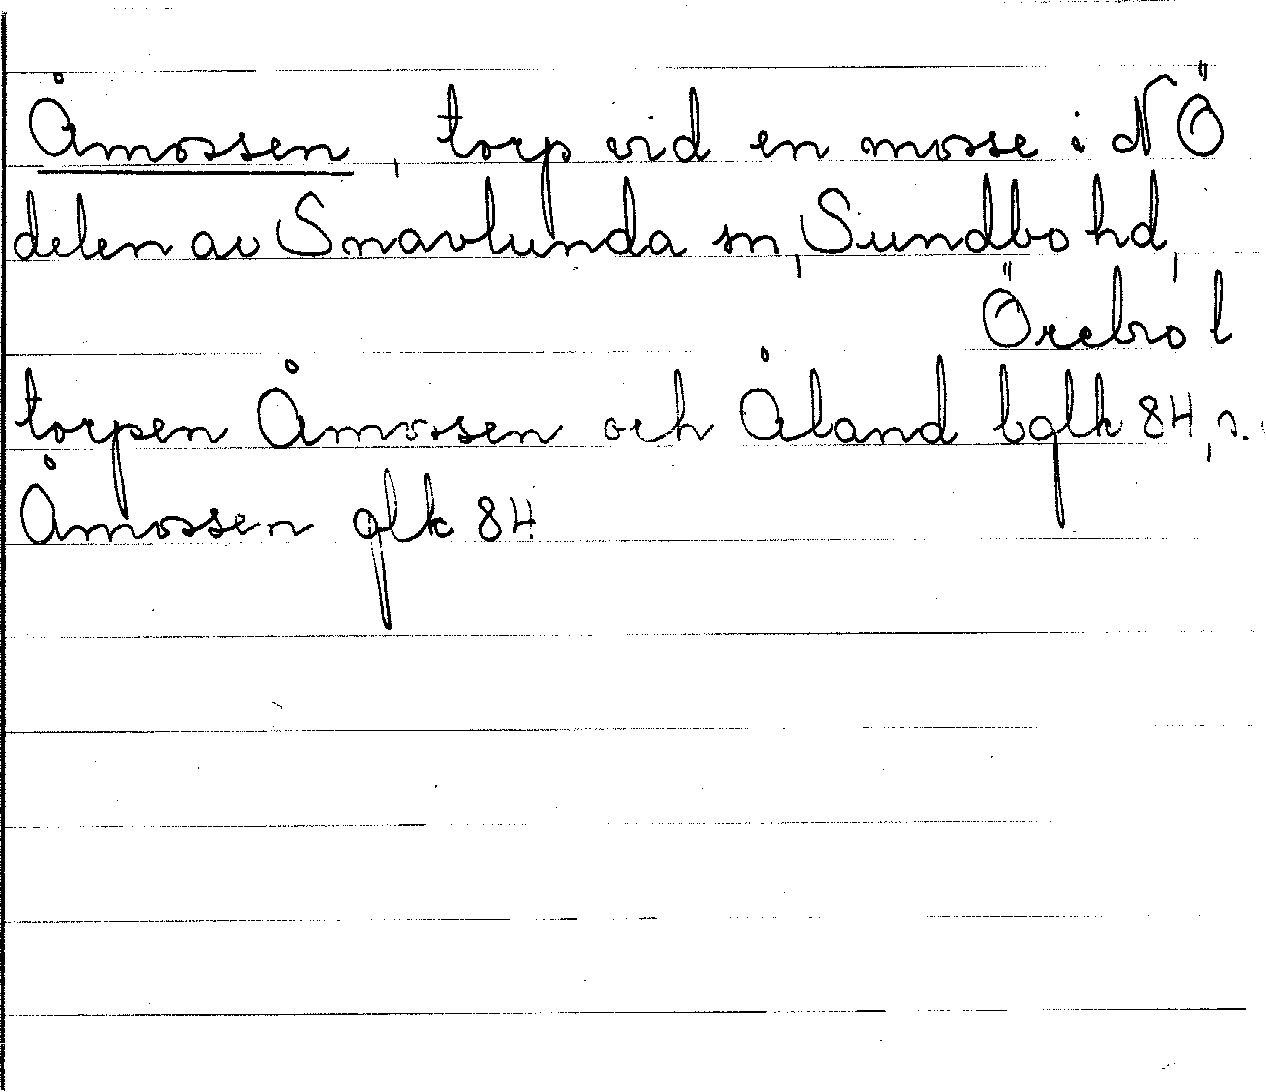 Åmossen, torp vid en mosse i NÖ
delen av Snavlunda sn, Sundbo hd,
Örebro l
torpen Åmossen och Åland bglk 84, s.
Åmossen glk 84